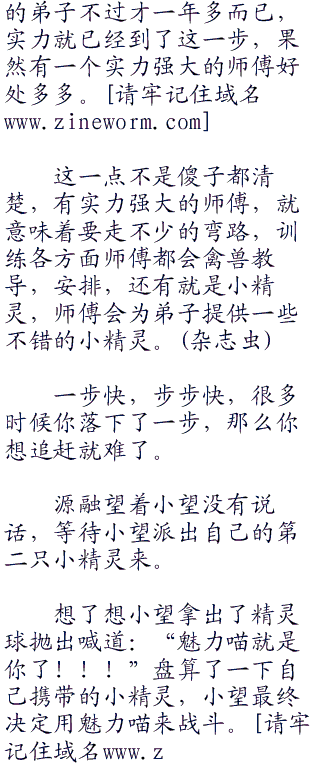 的弟子不过才一年多而已，
实力就已经到了这一步，果
然有一个实力强大的师傅好
处多多。[请牢记住域名
www.zineworm.com]
这一点不是傻子都清
楚，有实力强大的师傅，就
意味着要走不少的弯路，训
练各方面师傅都会禽兽教
导，安排，还有就是小精
灵，师傅会为弟子提供一些
不错的小精灵。(杂志虫)
一步快，步步快，很多
时候你落下了一步，那么你
想追赶就难了。
源融望着小望没有说
话，等待小望派出自己的第
二只小精灵来。
想了想小望拿出了精灵
球抛出喊道：“魅力喵就是
你了！！！”盘算了一下自
己携带的小精灵，小望最终
决定用魅力喵来战斗。[请牢
记住域名www.z